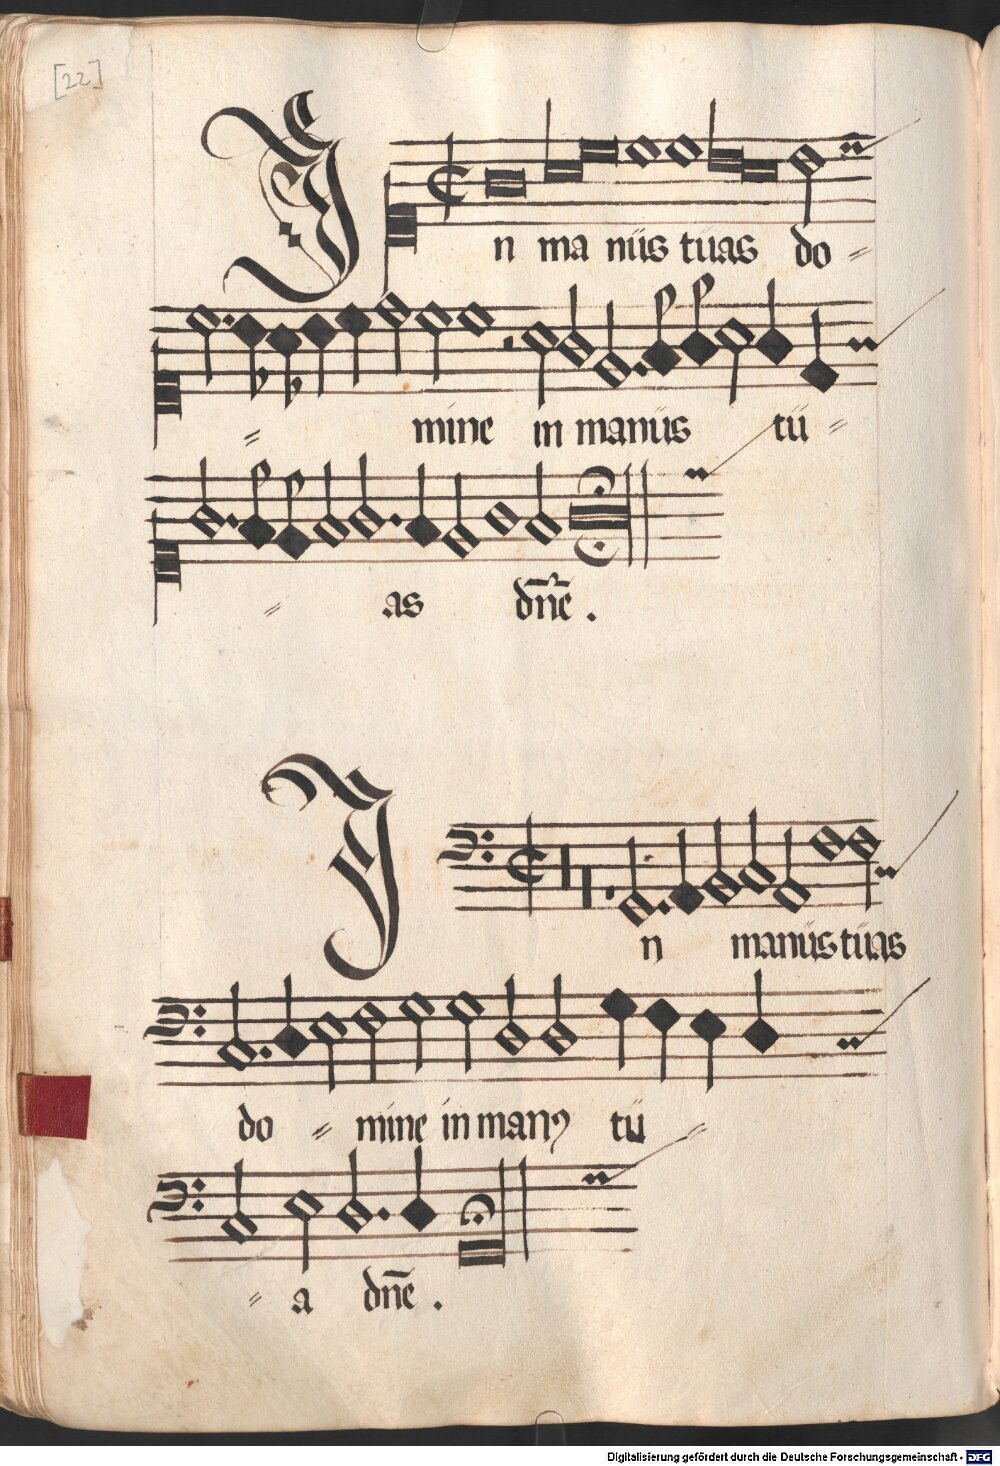 [22]
In manus tuas do-
- mine in manus tu-
- as dñe.
In manus tuas
do - mine in manꝯ tu -
- a dñe.
Digitalisierung gefördert durch die Deutsche Forschungsgemeinschaft - DFG